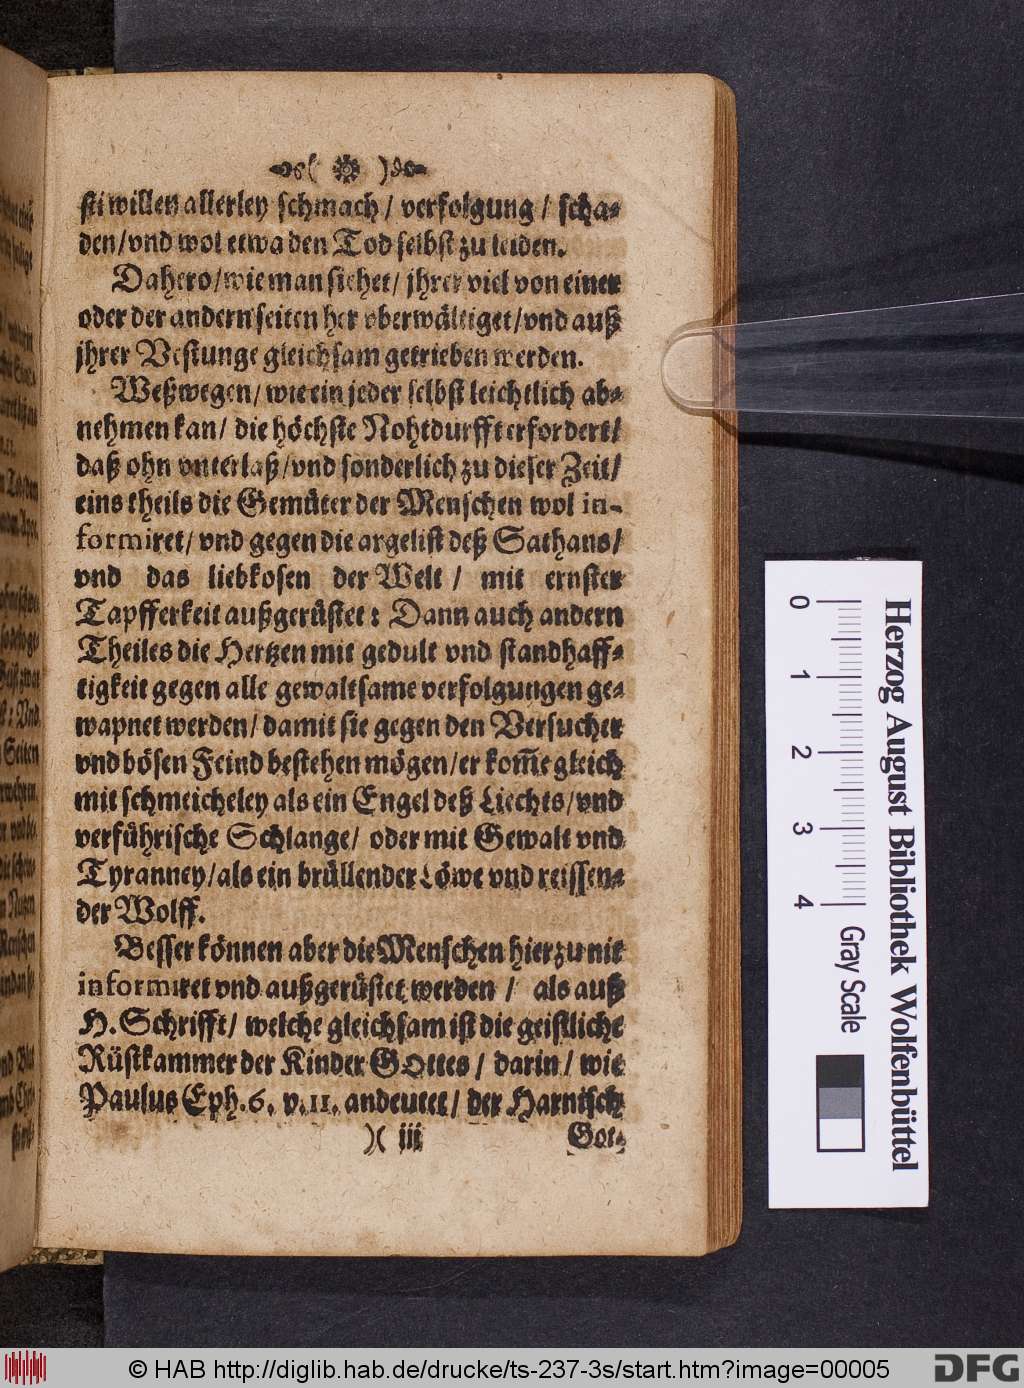 sti willen allerley schmach / verfolgung / scha-
den / vnd wol etwa den Tod selbst zu leiden.
Dahero / wie man siehet / jhrer viel von einer
oder der andern seiten her vberwältiget / vnd auß
jhrer Vestunge gleichsam getrieben werden.
Weßwegen / wie ein jeder selbst leichtlich ab-
nehmen kan / die höchste Nohtdurfft erfordert /
daß ohn vnterlaß / vnd sonderlich zu dieser Zeit /
eins theils die Gemüter der Menschen wol in-
formiret / vnd gegen die argelist deß Sathans /
vnd das liebkosen der Welt / mit ernster
Tapfferkeit außgerüstet: Dann auch andern
Theiles die Hertzen mit gedult vnd standhaff-
tigkeit gegen alle gewaltsame verfolgungen ge-
wapnet werden / damit sie gegen den Versucher
vnd bösen Feind bestehen mögen / er kom̃e gleich
mit schmeicheley als ein Engel deß Liechts / vnd
verführische Schlange / oder mit Gewalt vnd
Tyranney / als ein brüllender Löwe vnd reissen-
der Wolff.
Besser können aber die Menschen hierzu nit
informiret vnd außgerüstet werden / als auß
H. Schrifft / welche gleichsam ist die geistliche
Rüstkammer der Kinder GOttes / darin / wie
Paulus Eph. 6. v. 11. andeutet / der Harnisch
)( iii Got-
Herzog August Bibliothek Wolfenbüttel
0 1 2 3 4 Gray Scale
© HAB http://diglib.hab.de/drucke/ts-237-3s/start.htm?image=00005
DFG